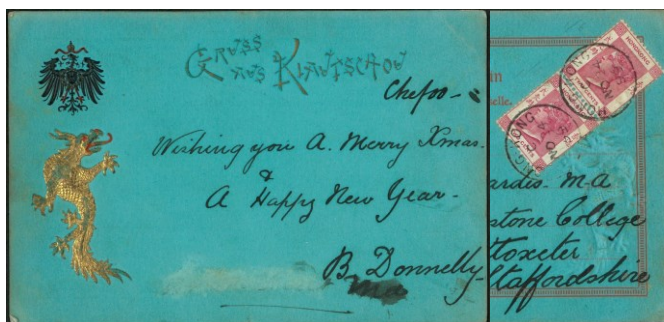 Gruss
aus Kiautschou
Chefoo-
Wishing you A. Merry Xmas.
&
A Happy New Year.
B. Donnelly
HONG KONG
HONGKONG
ardis. M.A
stone College
ttoxeter
Staffordshire